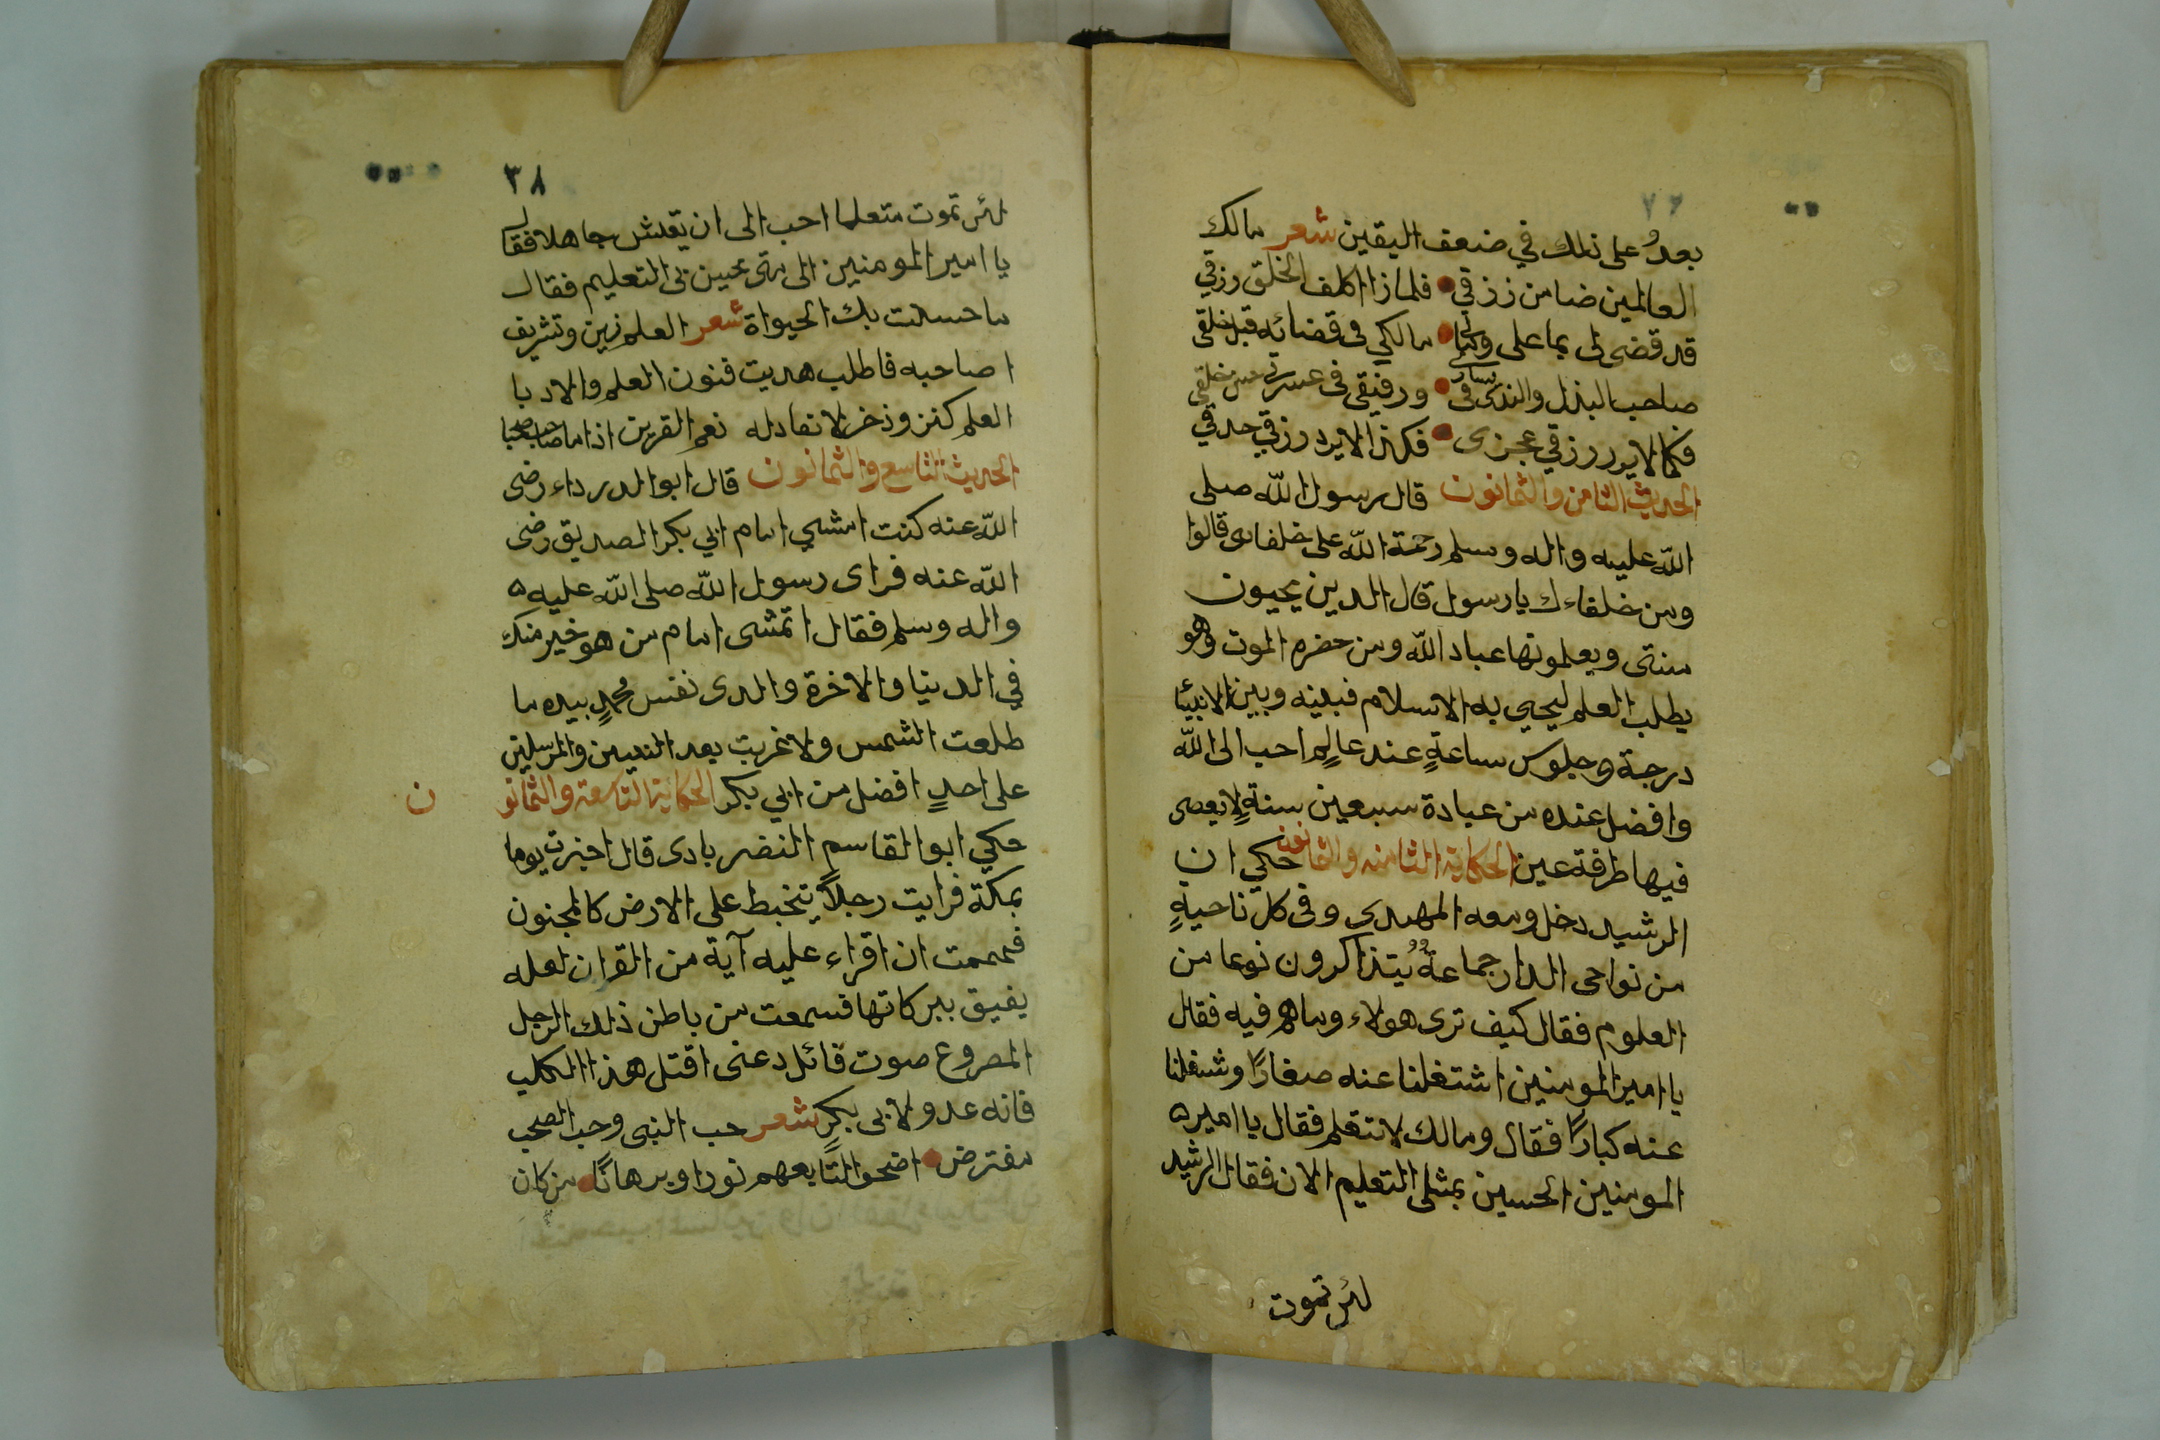 بعدُ على ذلك في ضعف اليقين شعر مالك
العالمين ضامن رزقي فلماذا اكلف الخلق رزقي
قد قضى لى بما على ولى مالكي في قضائه قبل خلقي
صاحب البذل والندى فى يسار ورفيقى فى عسرتي حسن خلقي
فكما لا يرد رزقي عجزى فكذا لا يرد رزقي حدقي
الحديث الثامن والثمانون قال رسول الله صلى
الله عليه واله وسلم رحمة الله على خلفاى قالوا
ومن خلفاءك يا رسول قال الدين يحيون
سنتى ويعلمونها عباد الله ومن حضره الموت وهو
يطلب العلم ليحيي به الاسلام فبينه وبين الانبياء
درجة وجلوس ساعةٍ عند عالِمٍ احب الى الله
وافضل عنده من عبادة سبعين سنةٍ لا يعصى
فيها طرفة عين الحكاية الثامنه والثمانون حكي ان
الرشيد دخل ومعه المهدى وفى كل ناحيةٍ
من نواحى الدار جماعةٌ يُتذاكرون نوعا من
العلوم فقال كيف ترى هولاء وماهم فيه فقال
يا امير المومنين اشتغلنا عنه صغارًا وشغلنا
عنه كبارًا فقال ومالك لا تتعلم فقال يا امير
المومنين الحسين بمثلى التعليم الان فقال الرشيد
لئن تموت
٣٨
لئن تموت متعلما احب الى ان تعيش جاهلا فقال
يا امير المومنين الى متى يحسن بى التعليم فقال
ما حسنت بك الحيواة شعر العلم زين وتشريف
اصاحبه فاطلب هديت فنون العلم والادبا
العلم كنز وذخر لا نفاد له نعم القرين اذا ما صاحب صحبا
الحديث التاسع والثمانون قال ابو الدرداء رضى
الله عنه كنت امشي امام ابي بكر الصديق رضى
الله عنه فراى رسول الله صلى الله عليه
واله وسلم فقال اتمشى امام من هو خير منك
في الدنيا والاخرة والدى نفس محمدٍ بيده ما
طلعت الشمس ولا غربت بعد النبيين والمرسلين
على احدٍ افضل من ابي بكر الحكاية التاسعة والثمانو ن
حكي ابو القاسم النضر بادى قال اخبرت يوما
بمكة فرايت رجلاً يتخبط على الارض كالمجنون
فهممت ان اقراء عليه آية من القران لعله
يفيق ببركاتها فسمعت من باطن ذلك الرجل
المصروع صوت قائل دعنى اقتل هذا الكلب
فانه عدو لابى بكرٍ شعر حب النبى وحب الصحب
مفترض اضحوا لتابعهم نورا وبرهانًا من كان